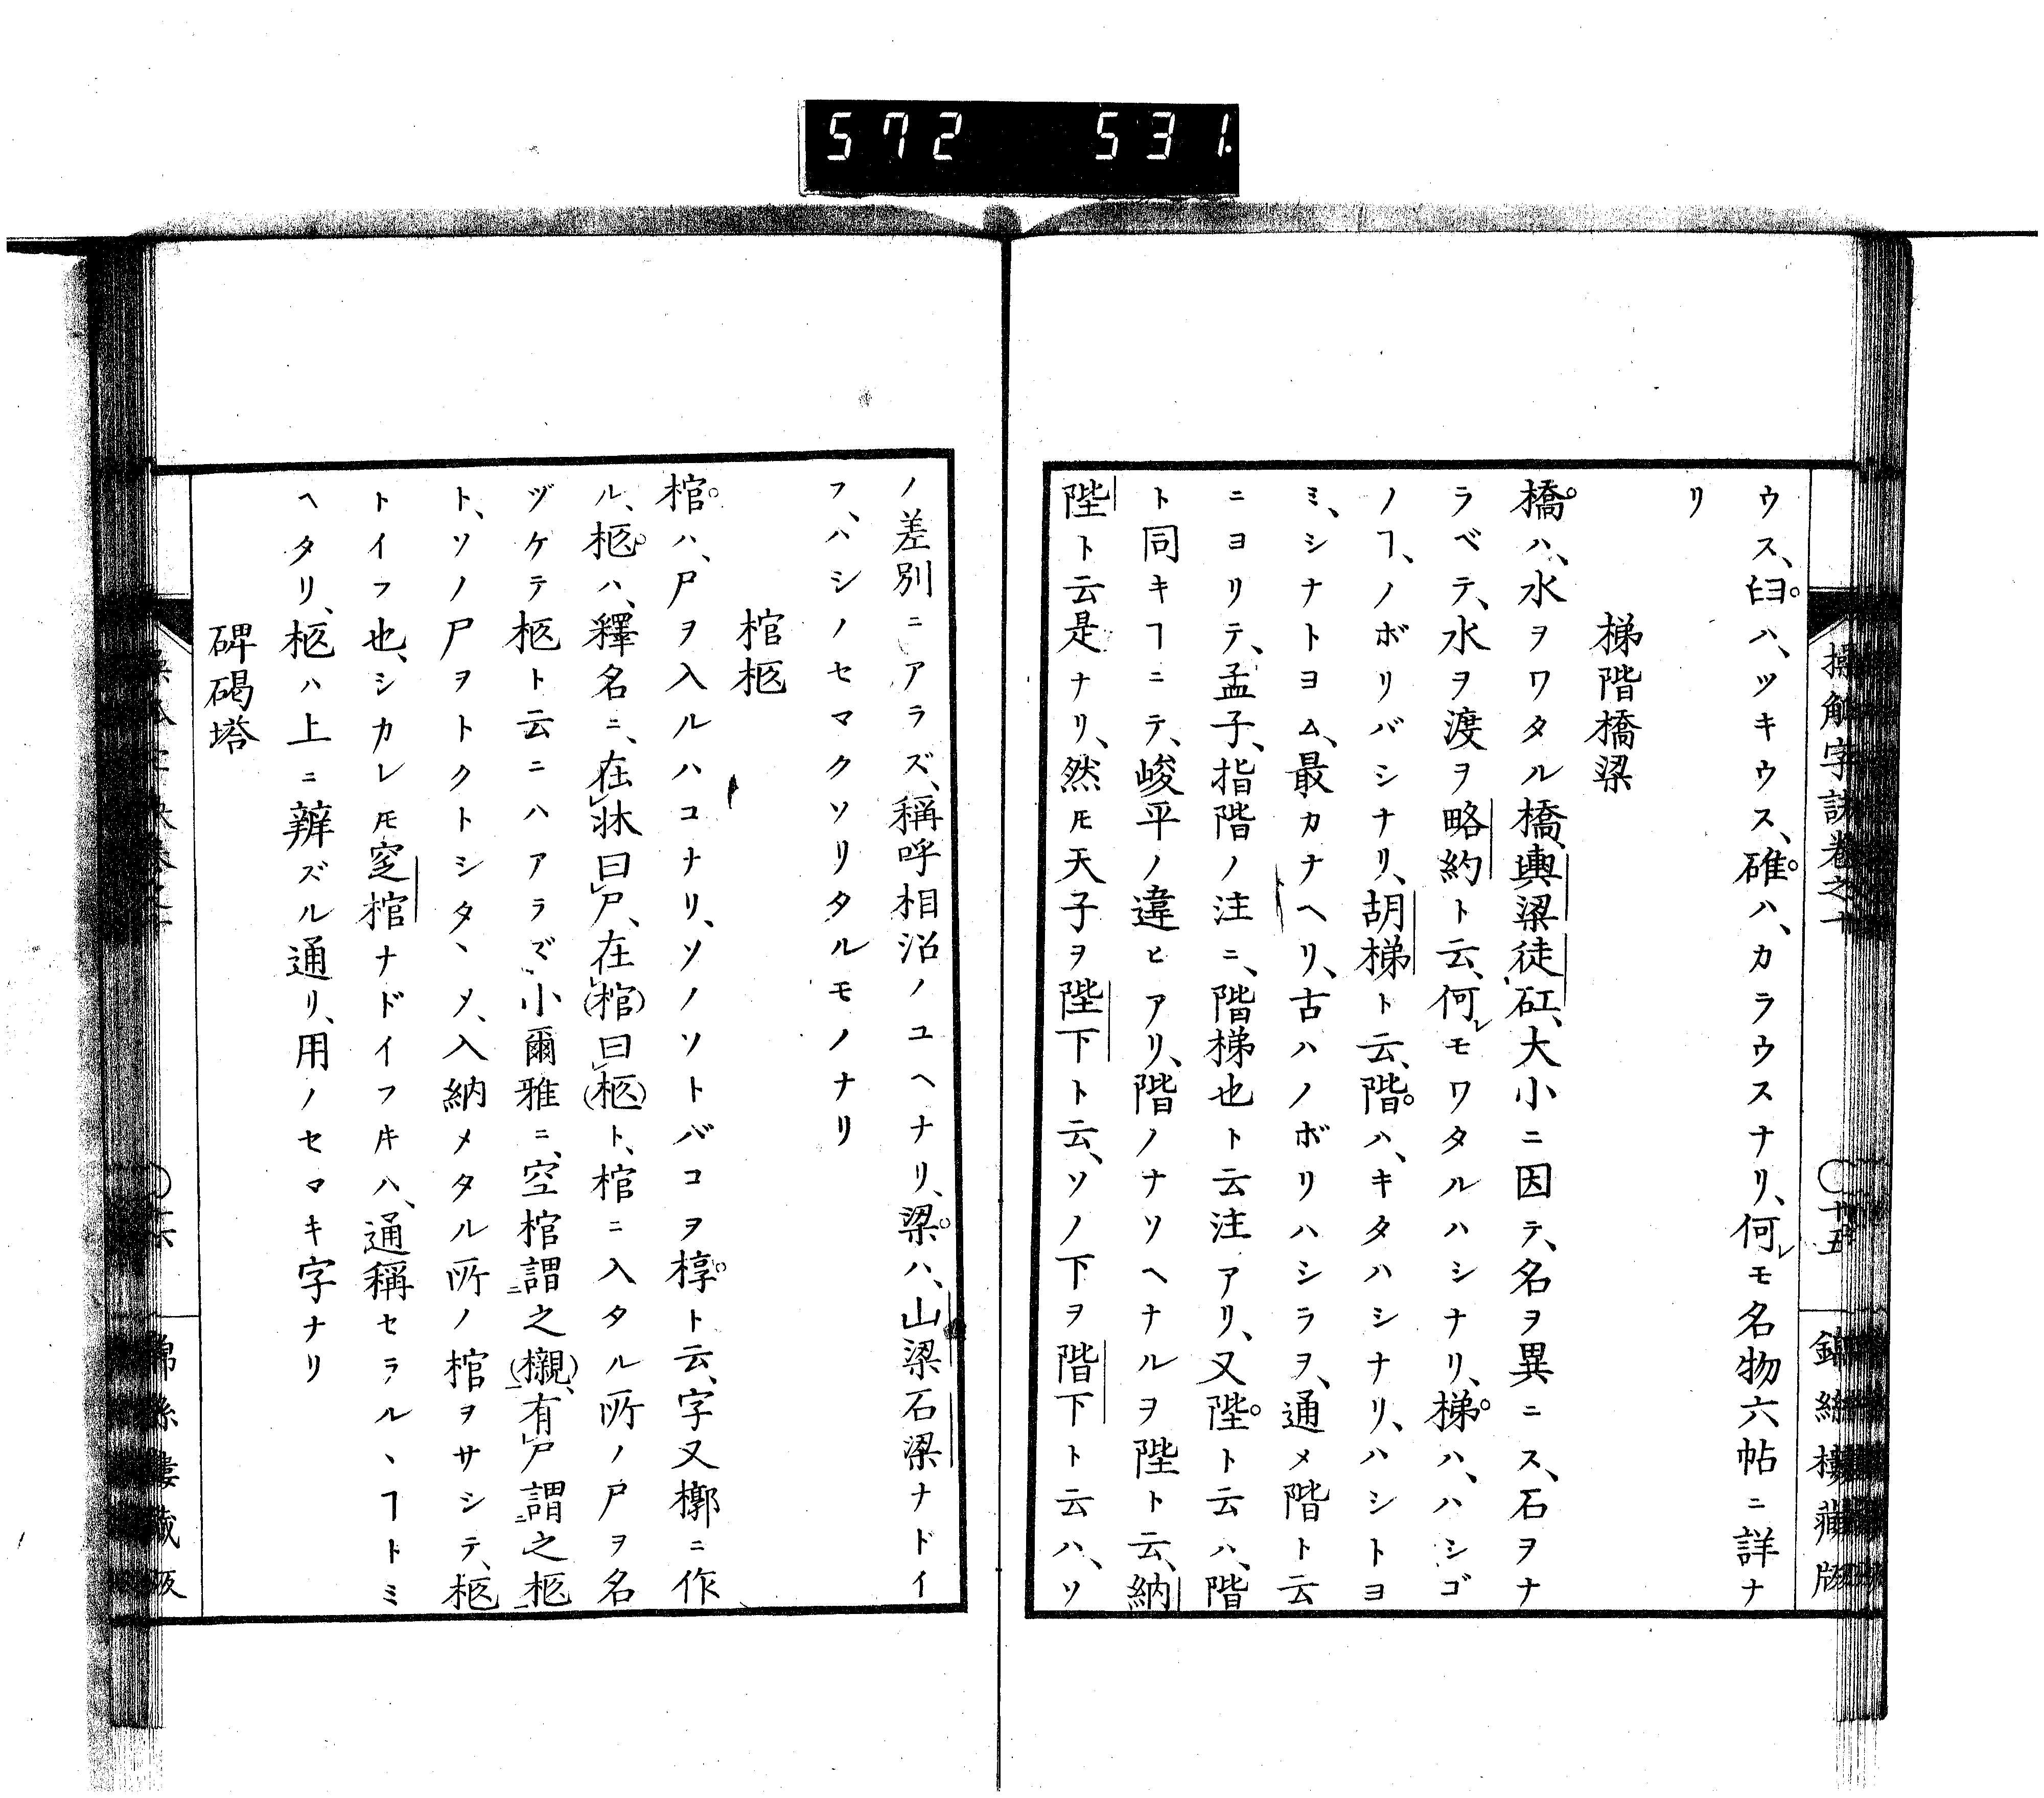 572 531.
操觚字訣卷之十 〇十五 錦絲樓藏版
ウス、臼ハ、ツキウス、碓ハ、カラウスナリ、何レモ名物六帖ニ詳ナ
リ
梯階橋梁
橋ハ、水ヲワタル橋、輿梁徒矼、大小ニ因テ、名ヲ異ニス、石ヲナ
ラベテ、水ヲ渡ヲ略約ト云、何レモワタルハシナリ、梯ハ、ハシゴ
ノヿ、ノボリバシナリ、胡梯ト云、階ハ、キタハシナリ、ハシトヨ
ミ、シナトヨム、最カナヘリ、古ハノボリハシラヲ、通メ階ト云
ニヨリテ、孟子、指階ノ注ニ、階梯也ト云注アリ、又陛ト云ハ、階
ト同キヿニテ、峻平ノ違ヒアリ、階ノナソヘナルヲ陛ト云、納
陛ト云是ナリ、然𪜈天子ヲ陛下ト云、ソノ下ヲ階下ト云ハ、ソ
ノ差別ニアラズ、稱呼相沿ノユヘナリ、梁ハ、山梁石梁ナドイ
フ、ハシノセマクソリタルモノナリ
棺柩
棺ハ、尸ヲ入ルハコナリ、ソノソトバコヲ椁ト云、字又槨ニ作
ル、柩ハ、釋名ニ、在牀曰尸、在棺曰柩ト、棺ニ入タル所ノ尸ヲ名
ヅケテ柩ト云ニハアラズ、小爾雅ニ、空棺謂之櫬、有尸謂之柩
ト、ソノ尸ヲトクトシタヽメ、入納メタル所ノ棺ヲサシテ、柩
トイフ也、シカレ𪜈窆棺ナドイフ𪜀ハ、通稱セラルヽヿトミ
ヘタリ、柩ハ上ニ辨ズル通リ、用ノセマキ字ナリ
碑碣塔
〇十六 錦絲樓藏版